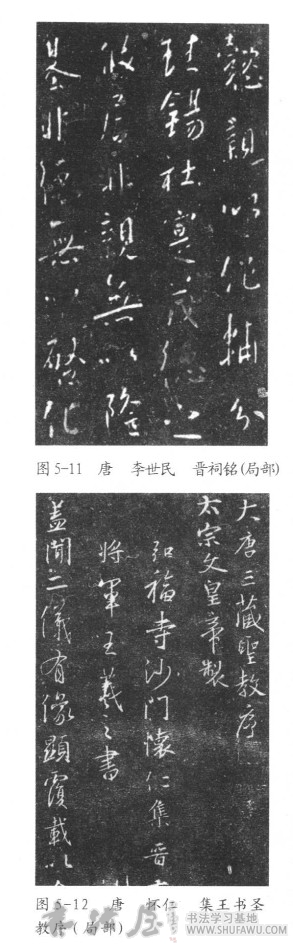 懿親以作輔分
珪錫社寔茂德之
攸居非親無以隆
基非德無以啓化
图5-11 唐 李世民 晋祠铭(局部)
大唐三藏聖教序
太宗文皇帝製
弘福寺沙門懷仁集晉
將軍王羲之書
蓋聞二儀有像顯覆載以
图5-12 唐 怀仁 集王书圣
教序(局部)
书法屋
书法学习基地
WWW.SHUFAWU.COM